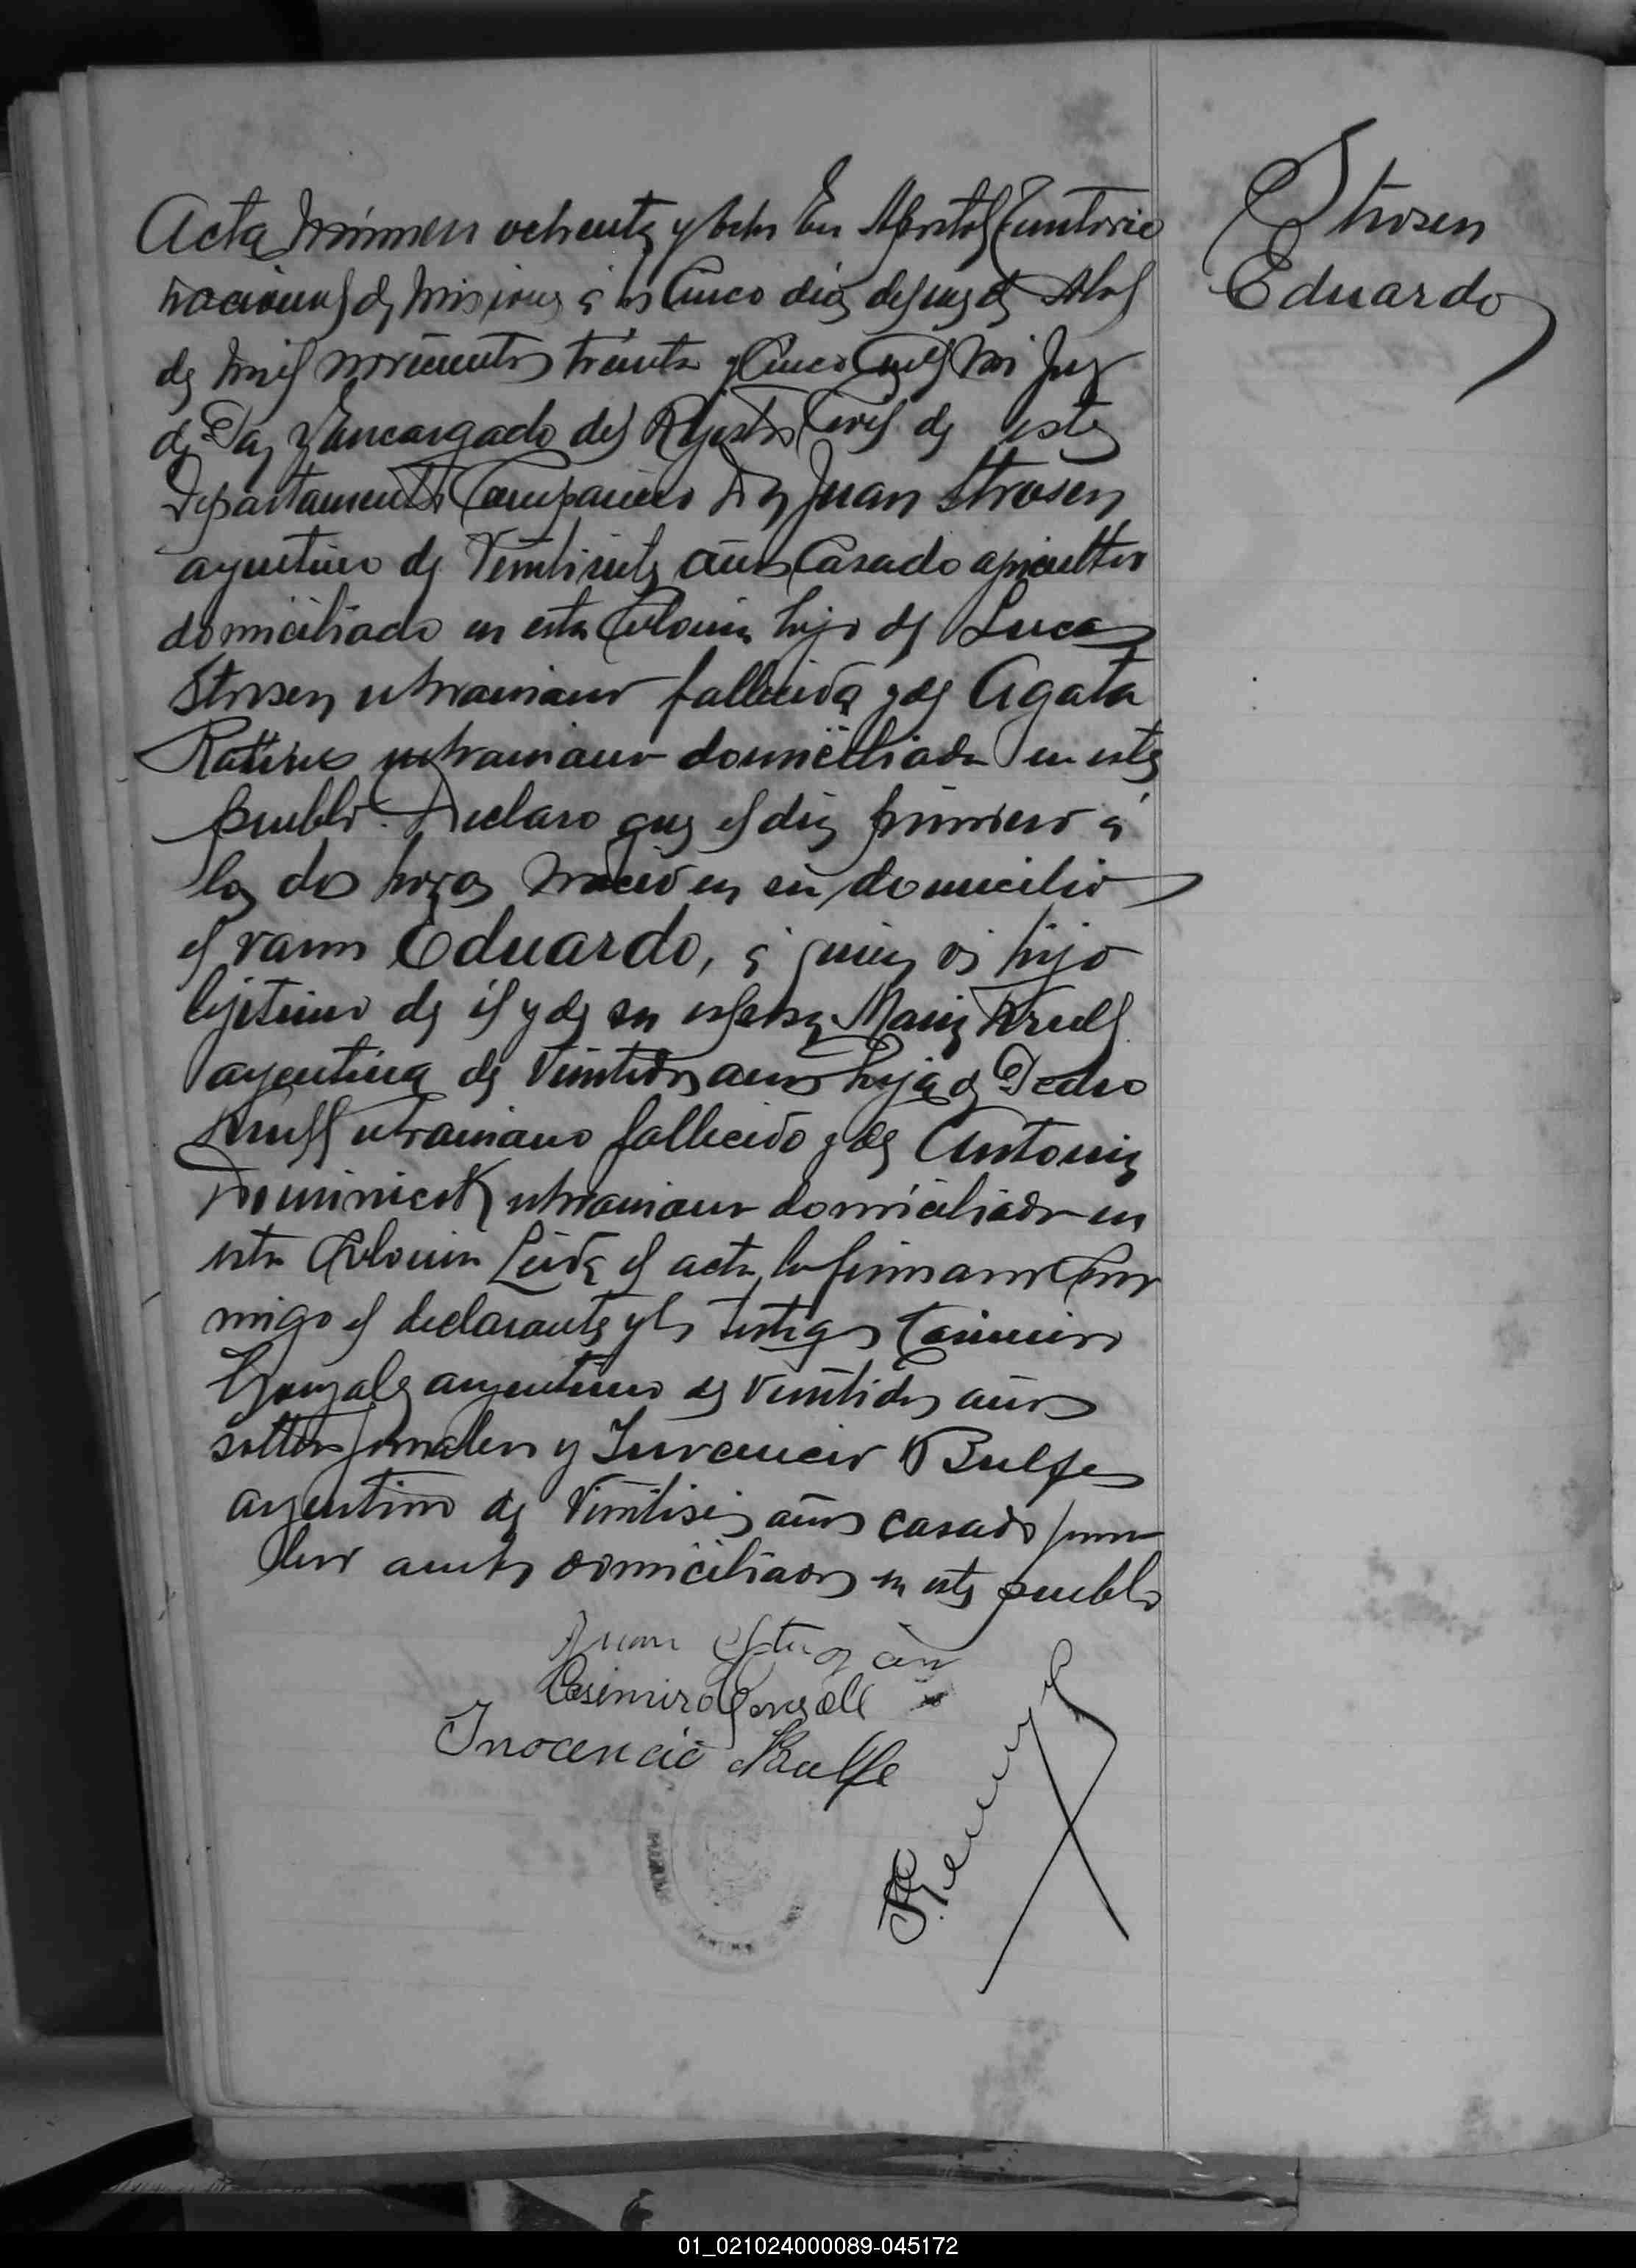 Strosen
Eduardo
Acta Número ochenta y ocho En Apostoles Territorio
nacional de Misiones á los Cinco dias del mes de Abril
de mil novecientos treinta y Cinco Ante Mi Juez
de Paz y Encargado del Rejistro Civil de este
Departamento Comparecio Don Juan Strosen
argentino de Veintisiete años Casado agricultor
domiciliado en esta Colonia hijo de Lucas
Strosen ukraniano fallecido y de Agata
ukraniana domiciliada en este
pueblo. Declaro que el dia primero á
las dos horas nació en su domicilio
el varon Eduardo, á quien es hijo
lejitimo de él y de su esposa Maria Krull
argentina de Veintidos años hija de Pedro
Krull ukraniano fallecido y de Antonia
ukraniana domiciliada en
esta Colonia Leida el acta la firmaron Con
migo el declarante y los testigos Casimiro
Gonzalez argentino de Veintidos años
soltero jornalero y Inocencio Bulfe
argentino de Veintiseis años casado jorna
lero ambos domiciliados en este pueblo
Juan
Casimiro Gonzale
Inocencio Bulfe
01_021024000089-045172